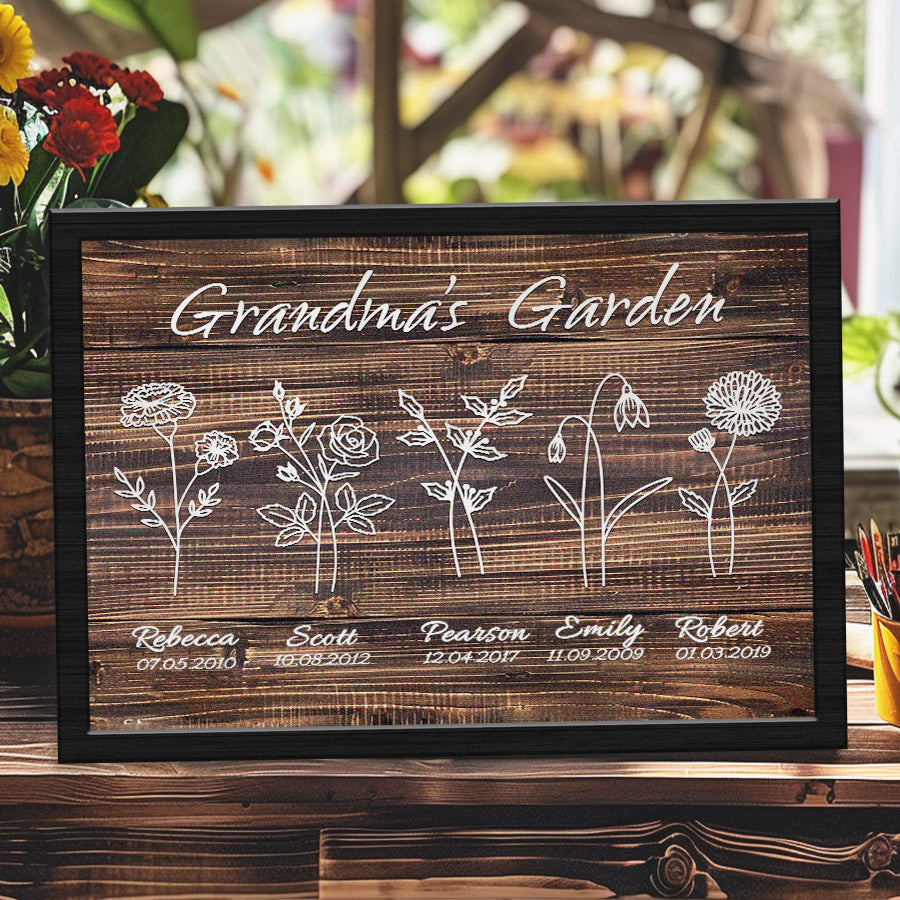 Grandma's Garden
Rebecca Scott Pearson Emily Robert
07.05.2010 10.08.2012 12.04.2017 11.09.2009 01.03.2019